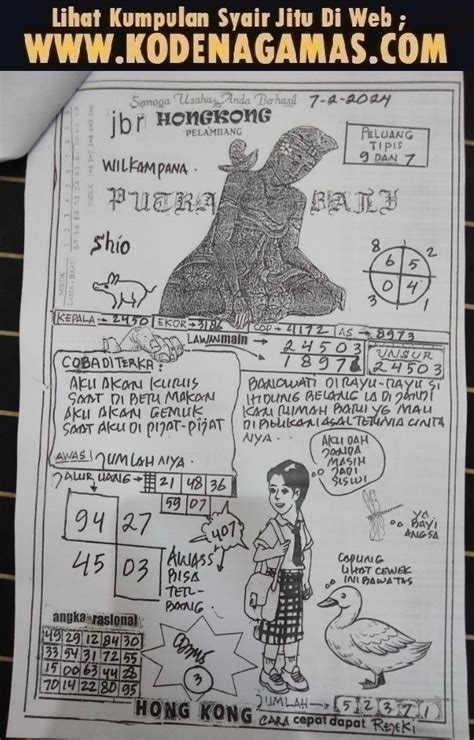 Lihat Kumpulan Syair Jitu Di Web ;
WWW.KODENAGAMAS.COM
Semoga Usaha Anda Berhasil
7-2-2024
jbr HONGKONG
PELAMBANG
PELUANG
TIPIS
9 DAN 7
WILKAMPANA.
PUTRA BALI
Shio
8 2
6 5
0 4
3 1
KEPALA 2450 EKOR 3186 COP 4172 AS 8973
LAWAN main
24503
18976
UNSUR
24503
COBA DI TERKA :
AKU AKAN KURUS
SAAT DI BERI MAKAN
AKU AKAN GEMUK
SAAT AKU DI PIJAT-PIJAT
BANOWATI DI RAYU-RAYU SI
HIDUNG BELANG IA DI JANJI
KAN RUMAH BARU YG MAU
DI BELIKAN ASAL TERIMA CINTA
NYA.
AWAS! JUMLAH NYA.
JALUR UANG 21 48 36
59 07
AKU DAH
JANDA
MASIH
JADI
SISWI
94 27
45 03
407
YA
BAYI
ANGSA
AWASS
BISA
TER-
BANG.
CAPUNG
LIHAT CEWEK
INI BAWA TAS
angka rasional
49 29 12 84 30
33 54 31 72 55
15 00 63 44 28
70 14 22 80 95
3
JUMLAH 5 2 3 7 1
HONG KONG CARA cepat dapat REJEKI